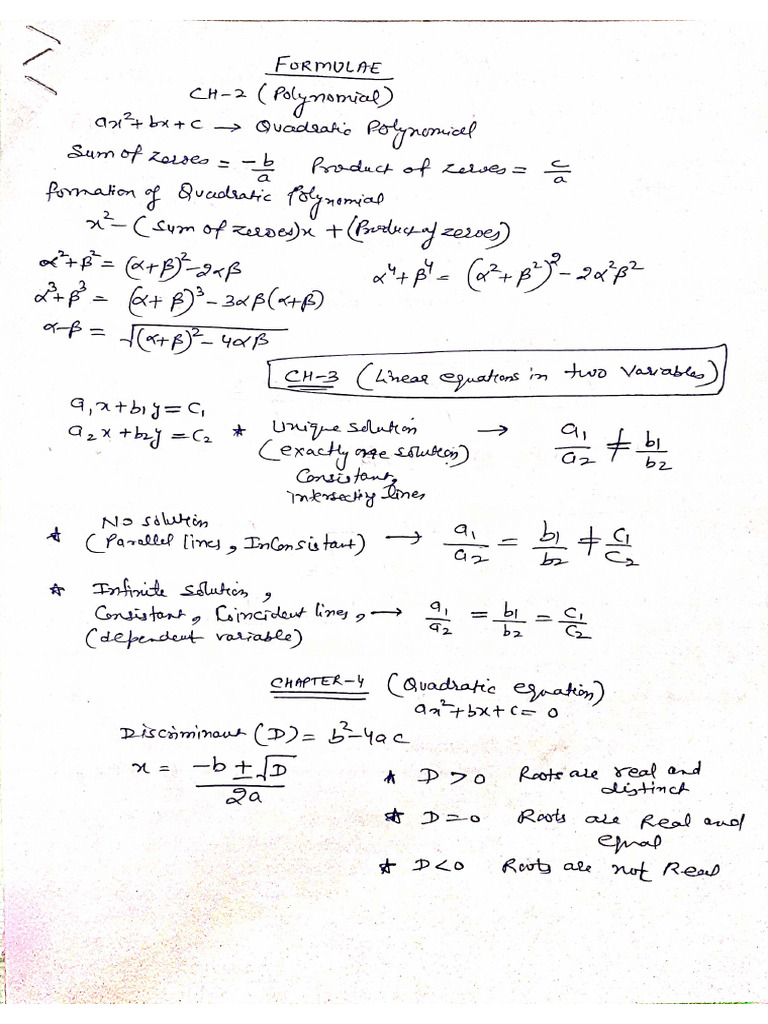 FORMULAE
CH-2 (Polynomial)
ax²+bx+c → Quadratic Polynomial
Sum of zeroes = -b/a Product of zeroes = c/a
formation of Quadratic Polynomial
x² - (Sum of zeroes)x + (Product of zeroes)
α²+β² = (α+β)² - 2αβ α⁴+β⁴ = (α²+β²)² - 2α²β²
α³+β³ = (α+β)³ - 3αβ(α+β)
α-β = √(α+β)² - 4αβ
CH-3 (Linear equations in two Variables)
a₁x+b₁y=c₁
a₂x+b₂y=c₂ * Unique solution → a₁/a₂ ≠ b₁/b₂
(exactly one solution)
Consistant,
intersecting lines
* No solution
(Parallel lines, InConsistant) → a₁/a₂ = b₁/b₂ ≠ c₁/c₂
* Infinite solution,
Consistant, Coincident lines, → a₁/a₂ = b₁/b₂ = c₁/c₂
(dependent variable)
CHAPTER-4 (Quadratic equation)
ax²+bx+c=0
Discriminant (D) = b²-4ac
x = -b ± √D / 2a
* D > 0 Roots are real and
distinct
* D = 0 Roots are Real and
equal
* D < 0 Roots are not Real